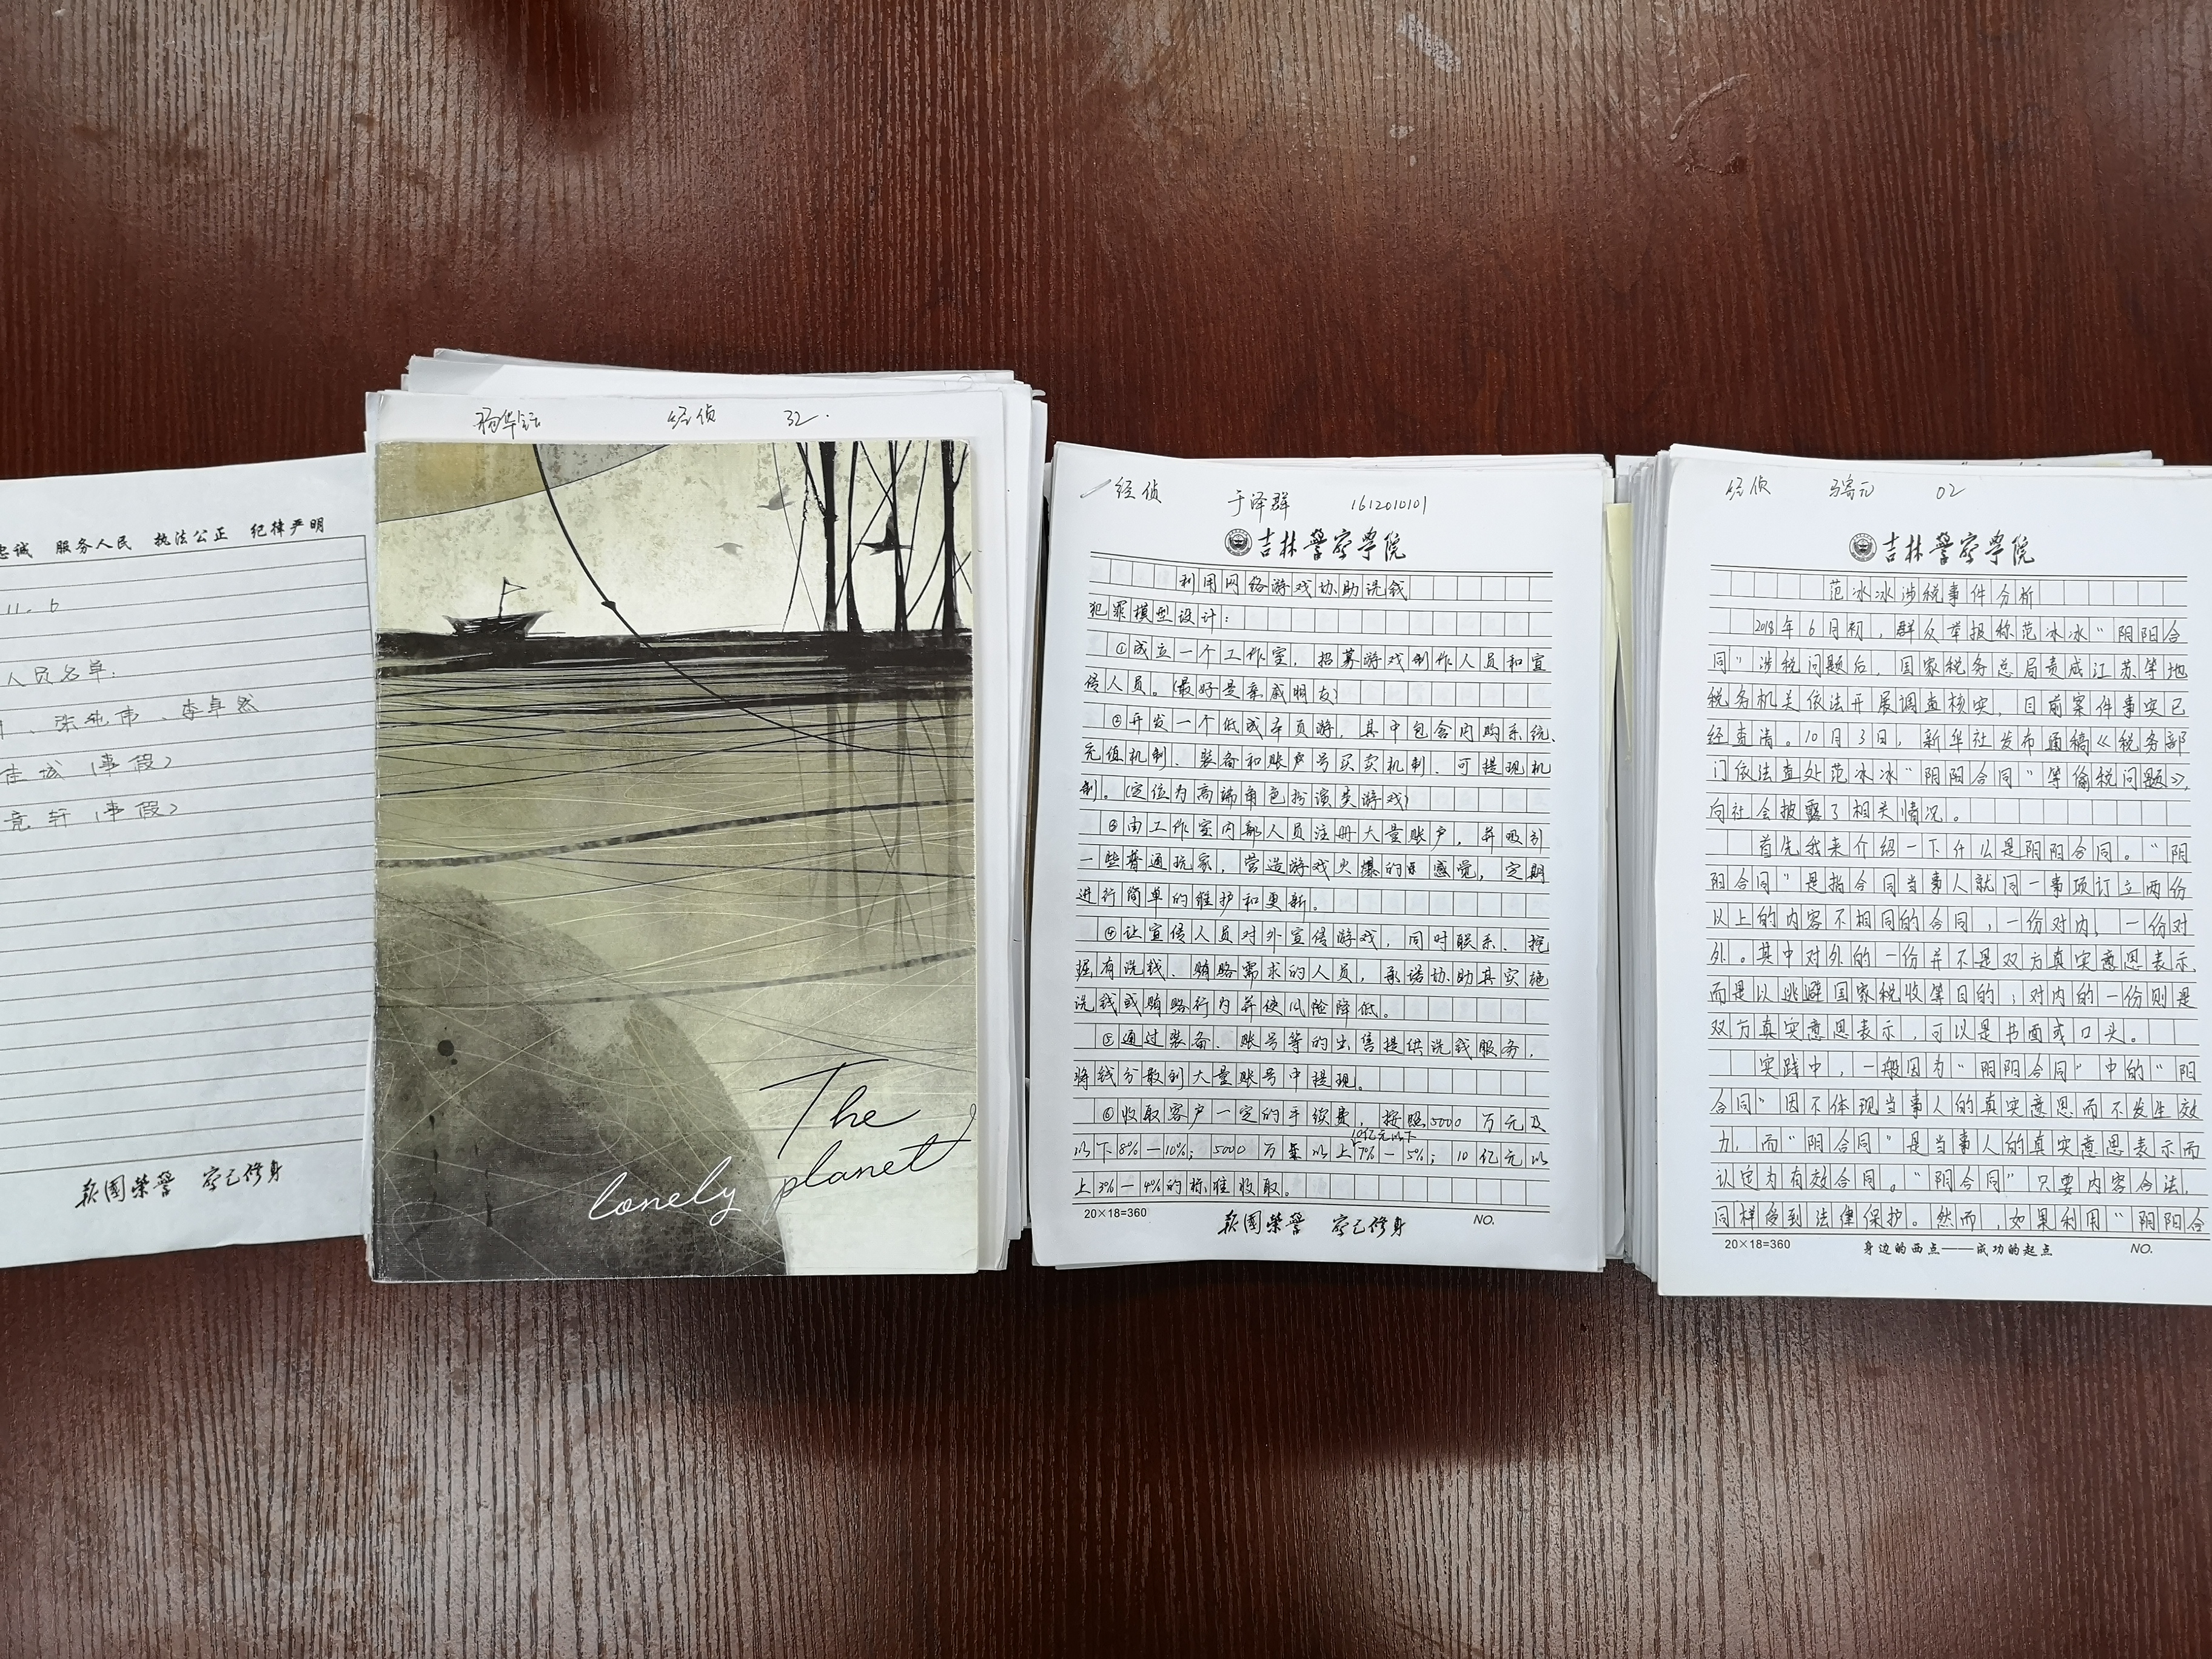 忠诚 服务人民 执法公正 纪律严明
11. 6
人员名单:
李卓然
佳城(事假)
竞轩(事假)
报国荣誉 察己修身
经侦 32.
The
lonely planet
经侦 于泽群 1612010101
吉林警察学院
利用网络游戏协助洗钱
犯罪模型设计:
①成立一个工作室,招募游戏制作人员和宣
传人员。(最好是亲戚朋友)
②开发一个低成本页游,其中包含内购系统、
充值机制、装备和账户号买卖机制、可提现机
制。(定位为高端角色扮演类游戏)
③由工作室内部人员注册大量账户,并吸引
一些普通玩家,营造游戏火爆的感觉,定期
进行简单的维护和更新。
④让宣传人员对外宣传游戏,同时联系、挖
掘有洗钱、贿赂需求的人员,承诺协助其实施
洗钱或贿赂行为并使风险降低。
⑤通过装备、账号等的出售提供洗钱服务,
将钱分散到大量账号中提现。
⑥收取客户一定的手续费,按照5000万元及
10亿元以下
以下8%—10%;5000万 以上7%—5%;10亿元以
上3%—4%的标准收取。
20×18=360
报国荣誉 察己修身
NO.
经侦 02
吉林警察学院
范冰冰涉税事件分析
2018年6月初,群众举报称范冰冰“阴阳合
同”涉税问题后,国家税务总局责成江苏等地
税务机关依法开展调查核实,目前案件事实已
经查清。10月3日,新华社发布通稿《税务部
门依法查处范冰冰“阴阳合同”等偷税问题》,
向社会披露了相关情况。
首先我来介绍一下什么是阴阳合同。“阴
阳合同”是指合同当事人就同一事项订立两份
以上的内容不相同的合同,一份对内,一份对
外。其中对外的一份并不是双方真实意思表示,
而是以逃避国家税收等目的;对内的一份则是
双方真实意思表示,可以是书面或口头。
实践中,一般因为“阴阳合同”中的“阳
合同”因不体现当事人的真实意思而不发生效
力,而“阴合同”是当事人的真实意思表示而
认定为有效合同。“阴合同”只要内容合法,
同样受到法律保护。然而,如果利用“阴阳合
20×18=360
身边的西点——成功的起点
NO.